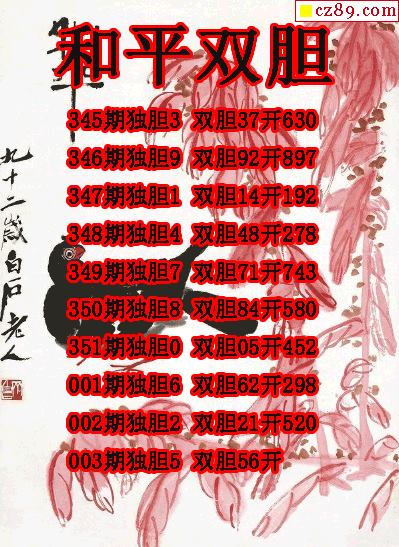 cz89.com
和平双胆
345期独胆3 双胆37开630
346期独胆9 双胆92开897
347期独胆1 双胆14开192
348期独胆4 双胆48开278
349期独胆7 双胆71开743
350期独胆8 双胆84开580
351期独胆0 双胆05开452
001期独胆6 双胆62开298
002期独胆2 双胆21开520
003期独胆5 双胆56开
九十二岁白石老人